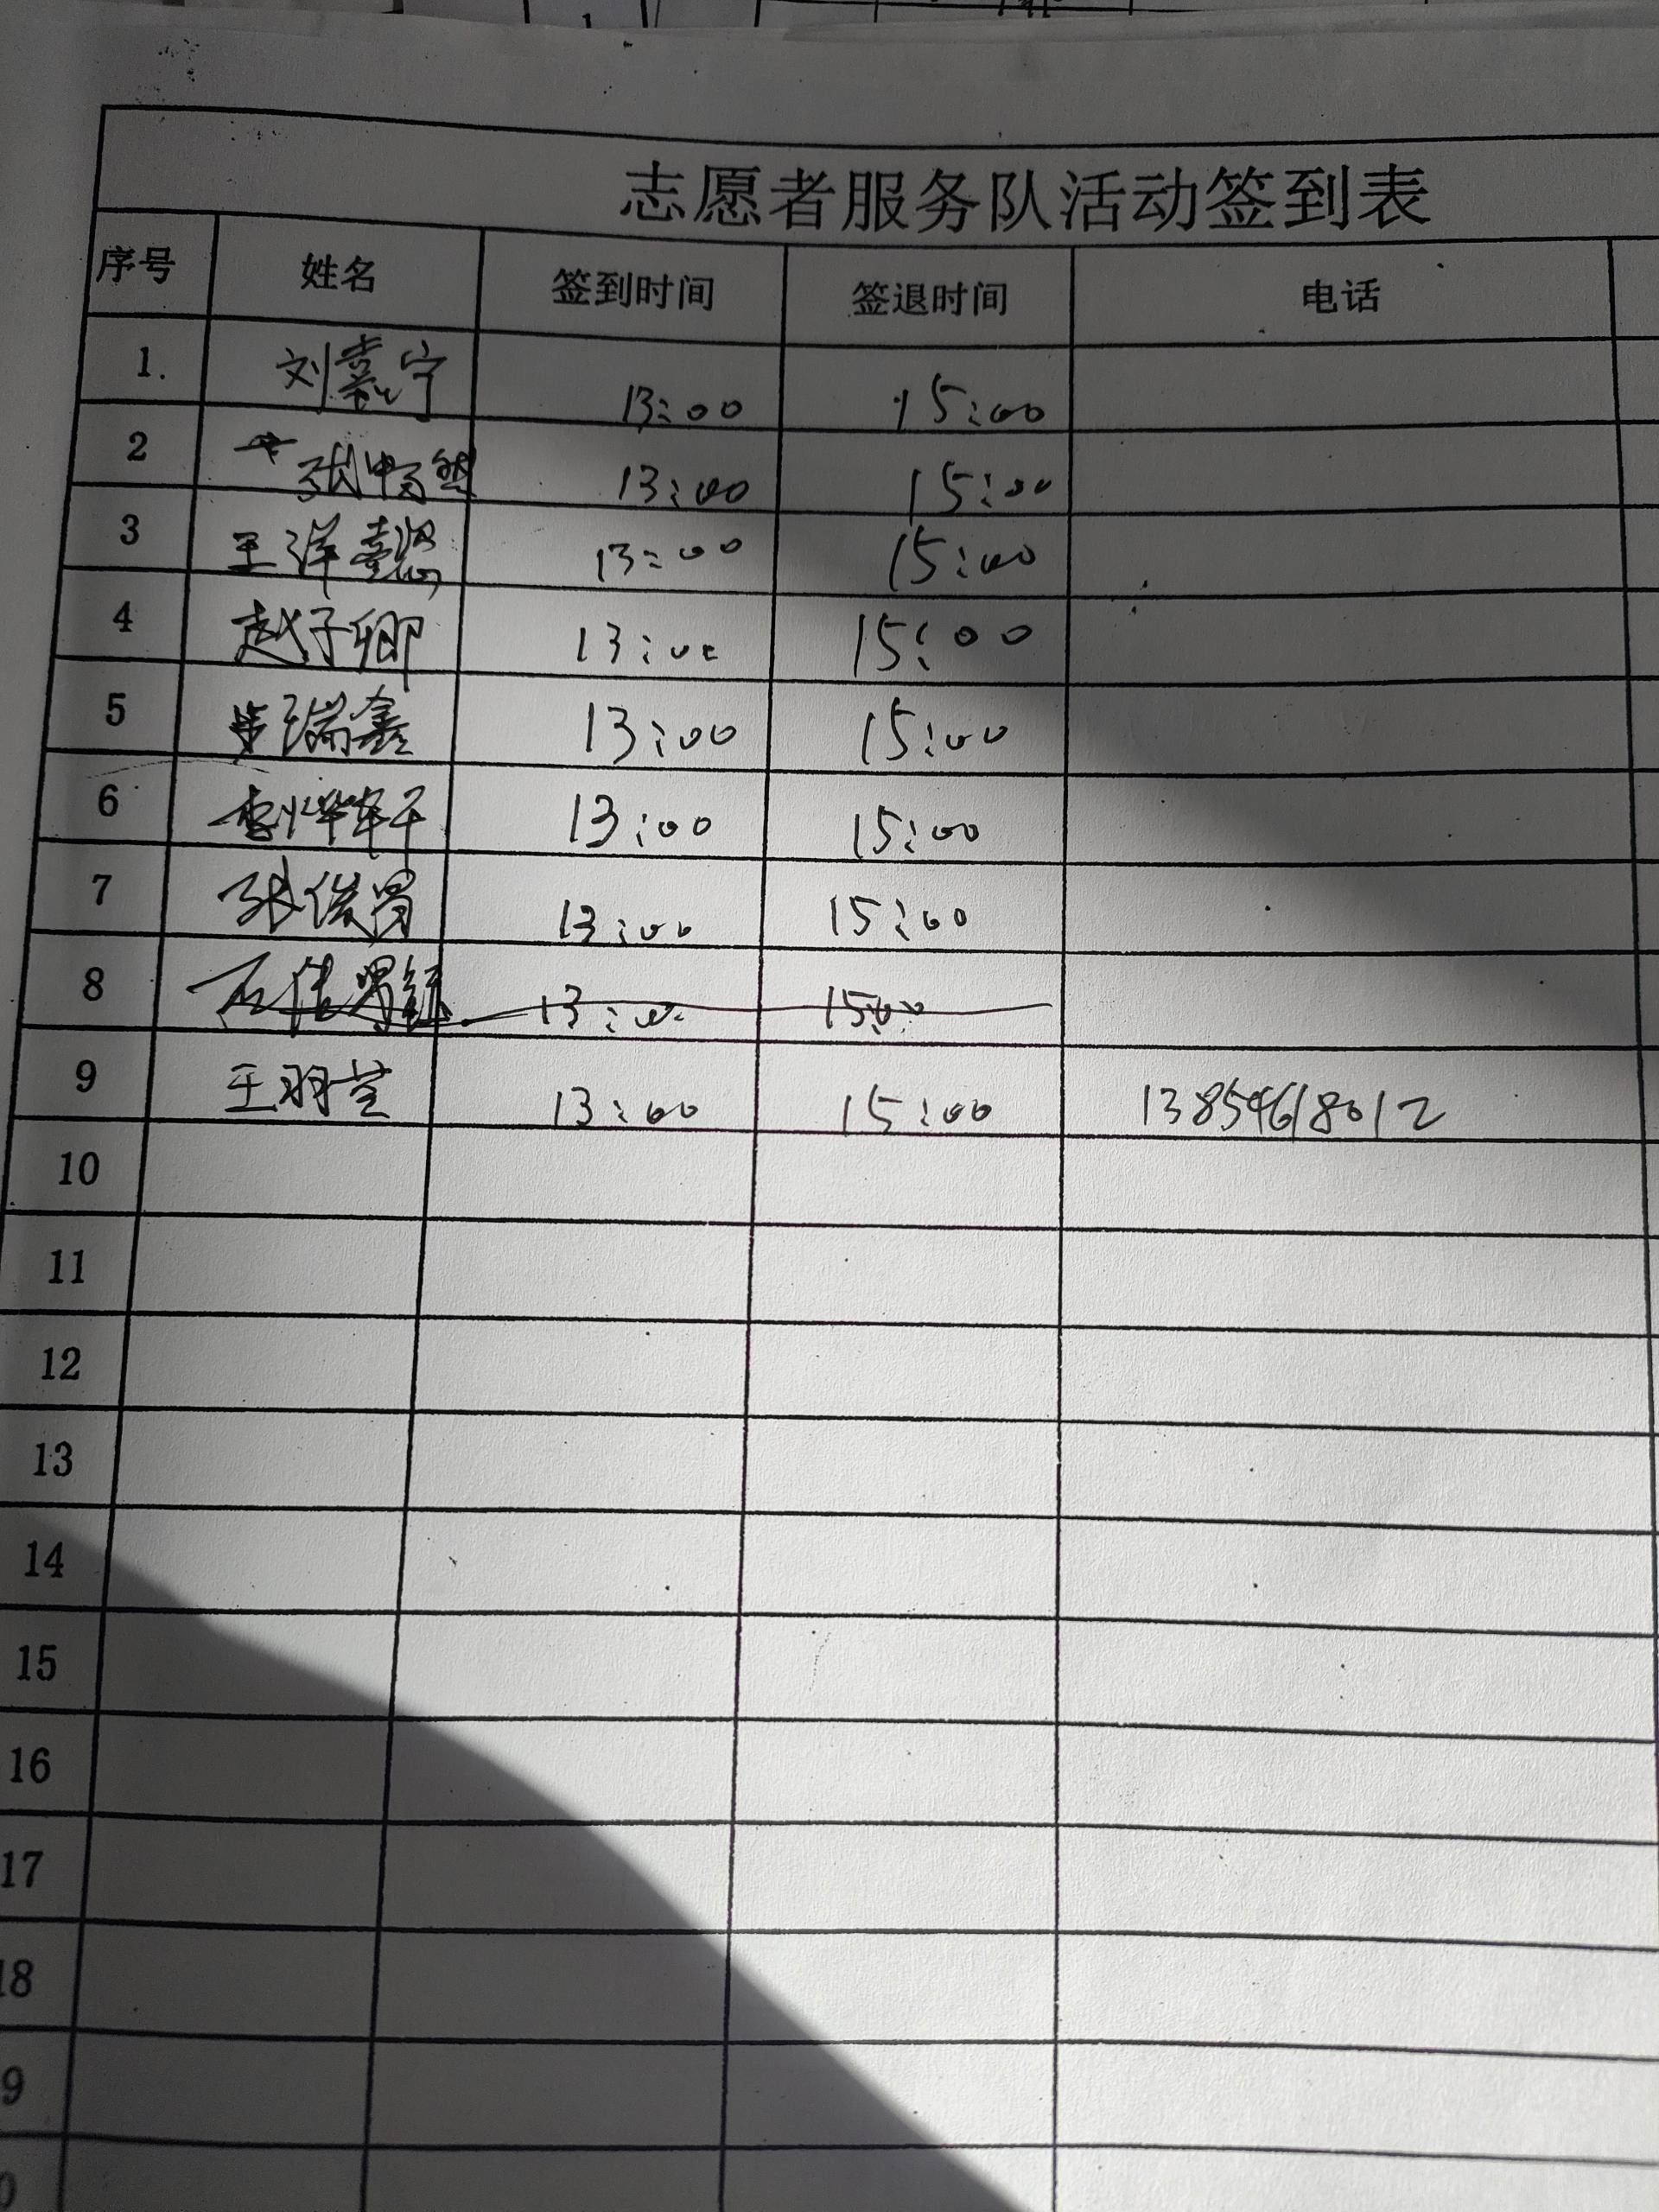 志愿者服务队活动签到表
序号 姓名 签到时间 签退时间 电话
1. 刘熹宁 13:00 15:00
2 张畅然 13:00 15:00
3 王洋懿 13:00 15:00
4 赵子卿 13:00 15:00
5 瑞鑫 13:00 15:00
6 李 13:00 15:00
7 张俊男 13:00 15:00
8 13:00 15:00
9 王羽萱 13:00 15:00 13854618012
10
11
12
13
14
15
16
17
18
9
0